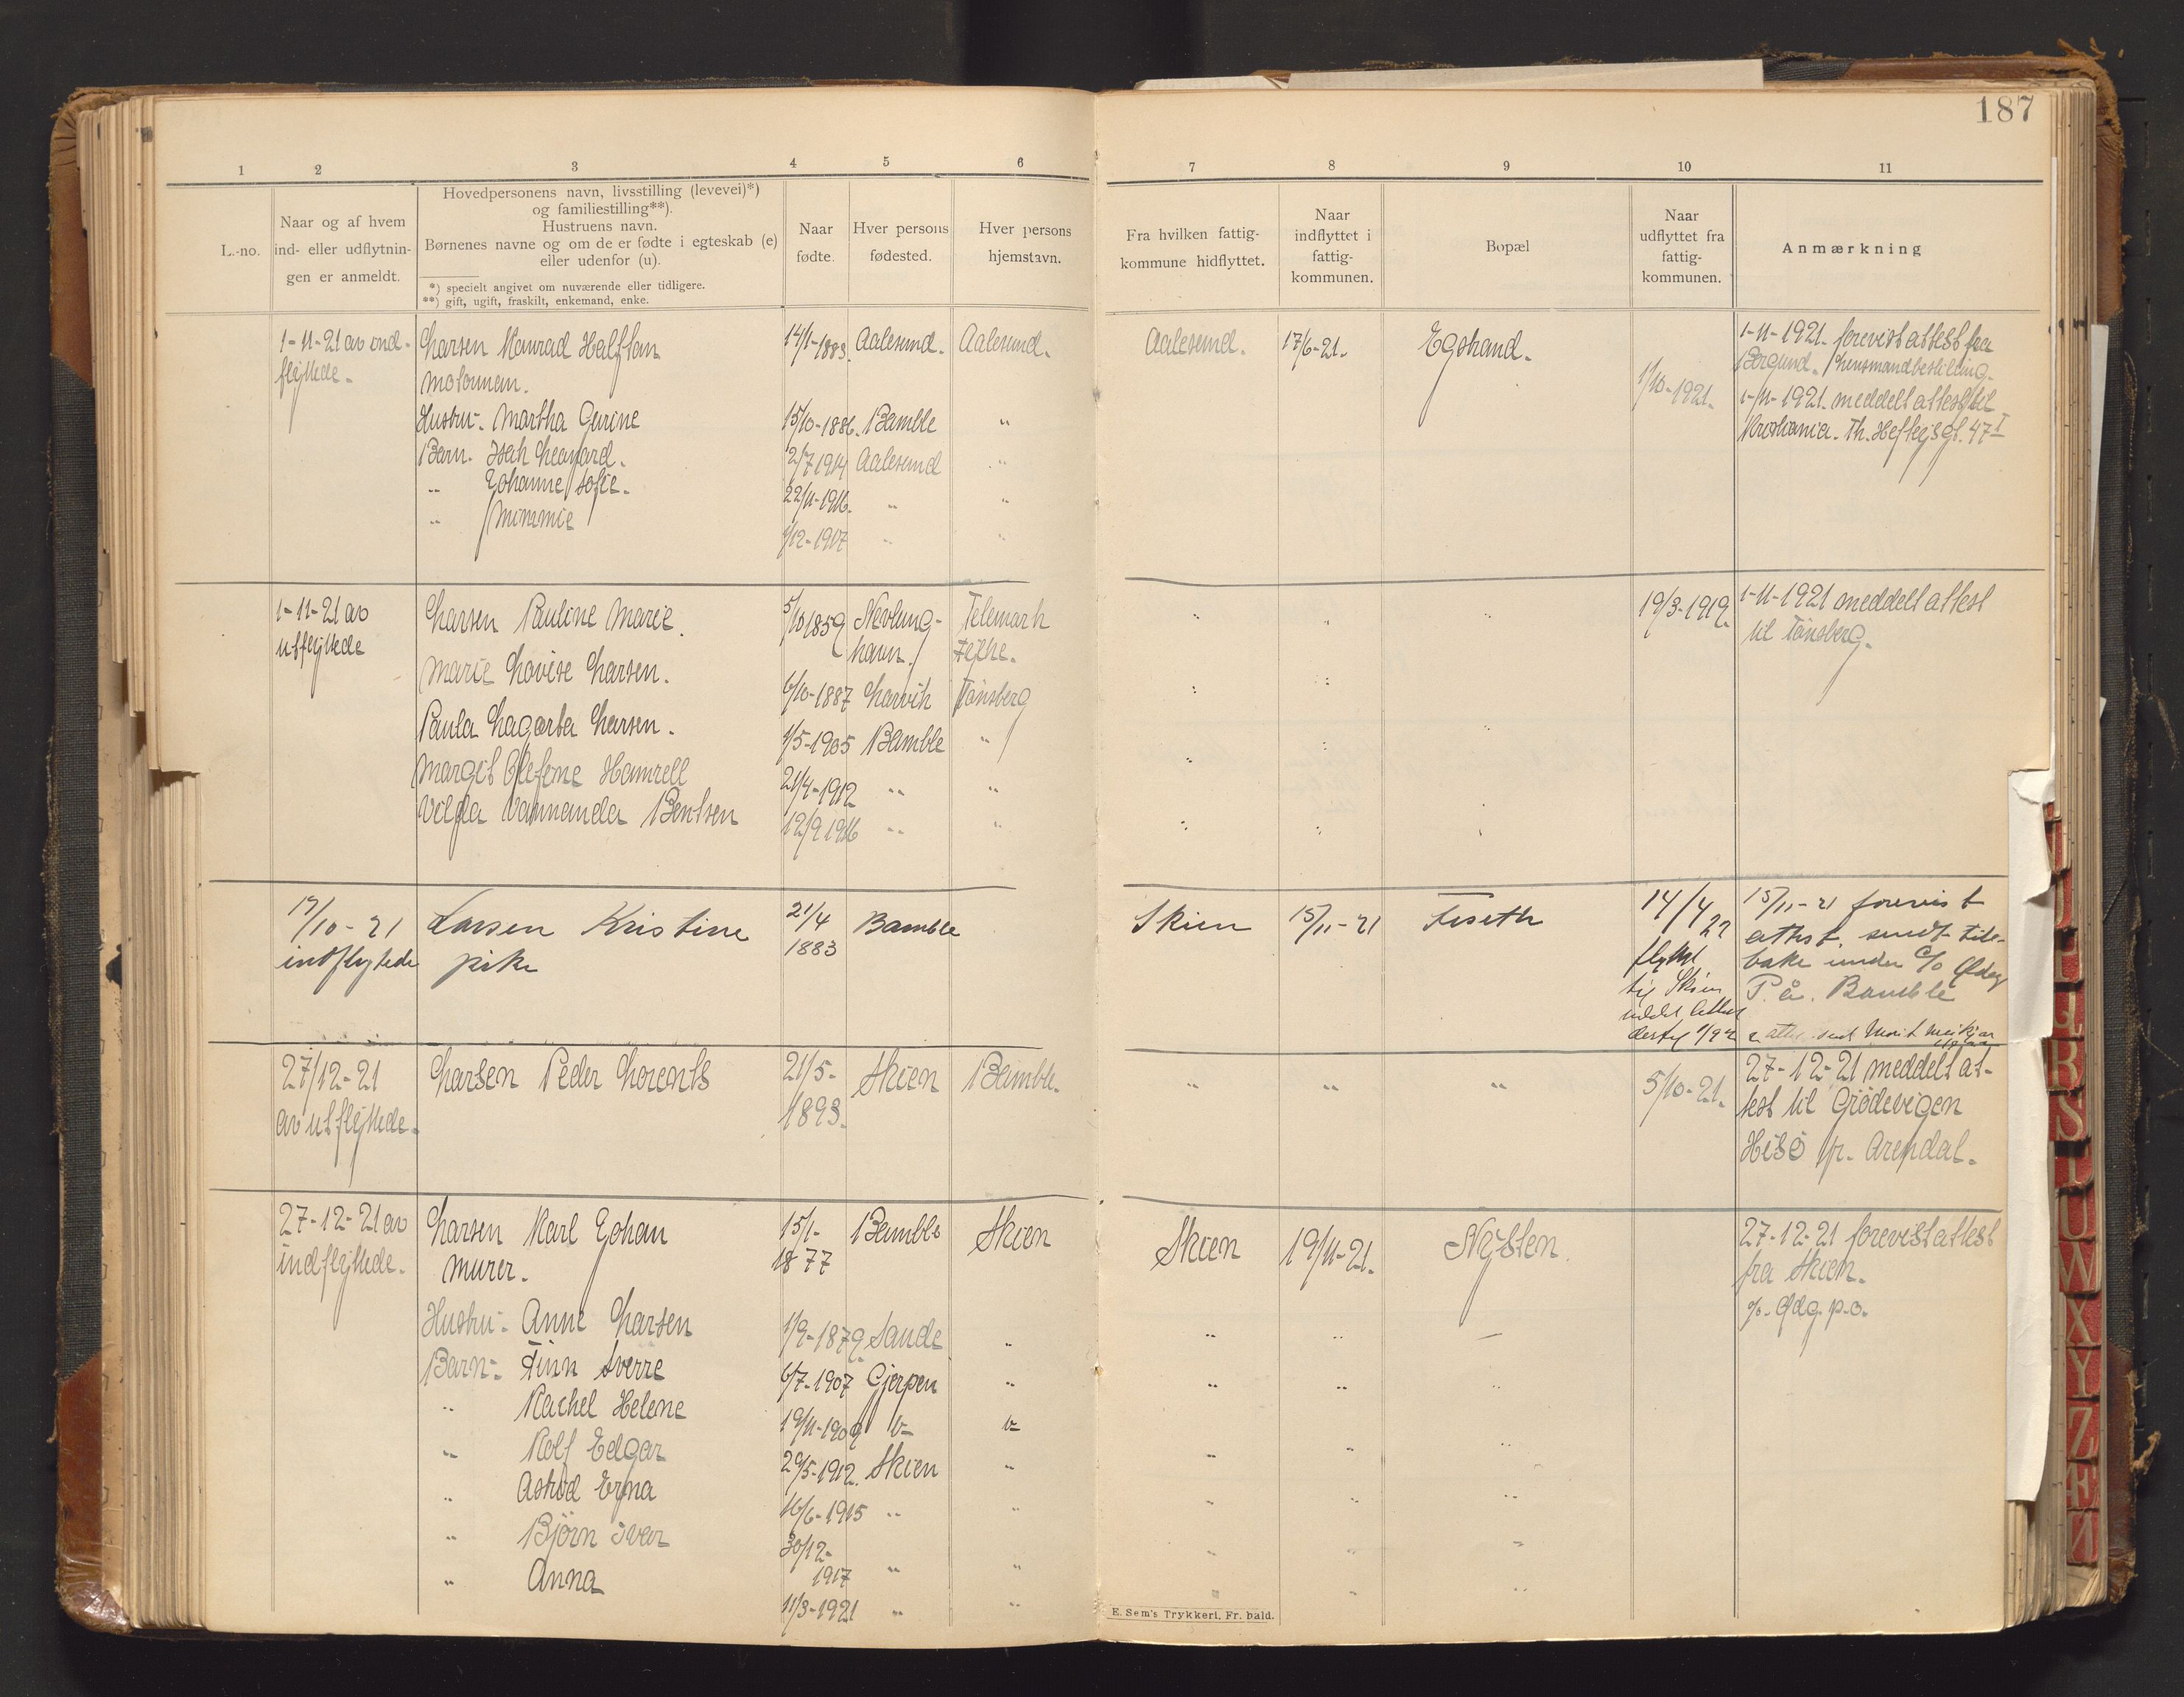 187
1 2 3 4 5 6 7 8 9 10 11
L.-no.
Naar og af hvem
ind- eller udflytnin-
gen er anmeldt.
Hovedpersonens navn, livsstilling (levevei)*)
og familiestilling**).
Hustruens navn.
Børnenes navne og om de er fødte i egteskab (e)
eller udenfor (u).
*) specielt angivet om nuværende eller tidligere.
**) gift, ugift, fraskilt, enkemand, enke.
Naar
fødte.
Hver persons
fødested.
Hver persons
hjemstavn.
Fra hvilken fattig-
kommune hidflyttet.
Naar
indflyttet i
fattig-
kommunen.
Bopæl
Naar
udflyttet fra
fattig-
kommunen.
Anmærkning
1-11-21 av ind-
flyttede.
Larsen Konrad Halfdan
14/1-1883. Aalesund. Aalesund.
Aalesund. 17/6-21. Egstrand.
1/10-1921.
1-11-1921. forevist attest fra
Borgund. Lensmandbestilling.
1-11-1921. meddelt attest til
Kristiania. Th. Heftiejs gt. 47 I
Motormann.
Hustru. Martha Gurine 15/10-1886. Bamble "
Barn. Isak Leonard. 2/7 1914 Aalesund "
" Johanne Sofie. 22/11-1916. " "
" Mimmie 1/12-1917 " "
1-11-21 av
utflyttede
Larsen Pauline Marie. 5/10 1859 Nevlung-
havn. Telemark
Fylke.
" " " 19/3-1919. 1-11-1921 meddelt attest
til Tønsberg.
Marie Lovise Larsen. 6/10-1887 Larvik Tønsberg
Paula Hagarba Larsen. 4/5-1905 Bamble "
Margit Olefene Hamrell 21/4-1912 " "
Wilda Vannanda Bentsen 12/9 1916 " "
17/10-21
indflyttede
Larsen Kristine
pike
21/4
1883
Bamble
Skien 15/11-21 Fiseth
14/4 22
flyttet
til Skien
15/11-21 forevist
attest. sendt tile-
bake under c/o Ødeg
P. å. Bamble
27/12-21
av utflyttede.
Larsen Peder Lorents
21/5-
1893.
Skien Bamble.
" " " 5/10-21.
27-12-21 meddelt at-
test til Grödevigen
Hisö pr. Arendal.
27-12-21 av
indflyttede.
Larsen Karl Johan
murer.
15/1-
1877
Bamble Skien
Skien 19/11-21. Nysten.
27-12-21 forevist attest
fra Skien.
c/o. Ødg. p.o.
Hustru. Anne Larsen 1/9-1879. Sande "
Barn. Finn Sverre 6/7-1907 Gjerpen "
" Rachel Helene 19/11-1909 "
" Rolf Edgar 29/5-1912. Skien "
" Astrid Erna 16/6-1915 " "
" Björn Ivar 30/12-
1917 " "
" Anna 11/3-1921 " "
E. Sem's Trykkeri, Fr. hald.
R S T U W X Y Z Æ Ø